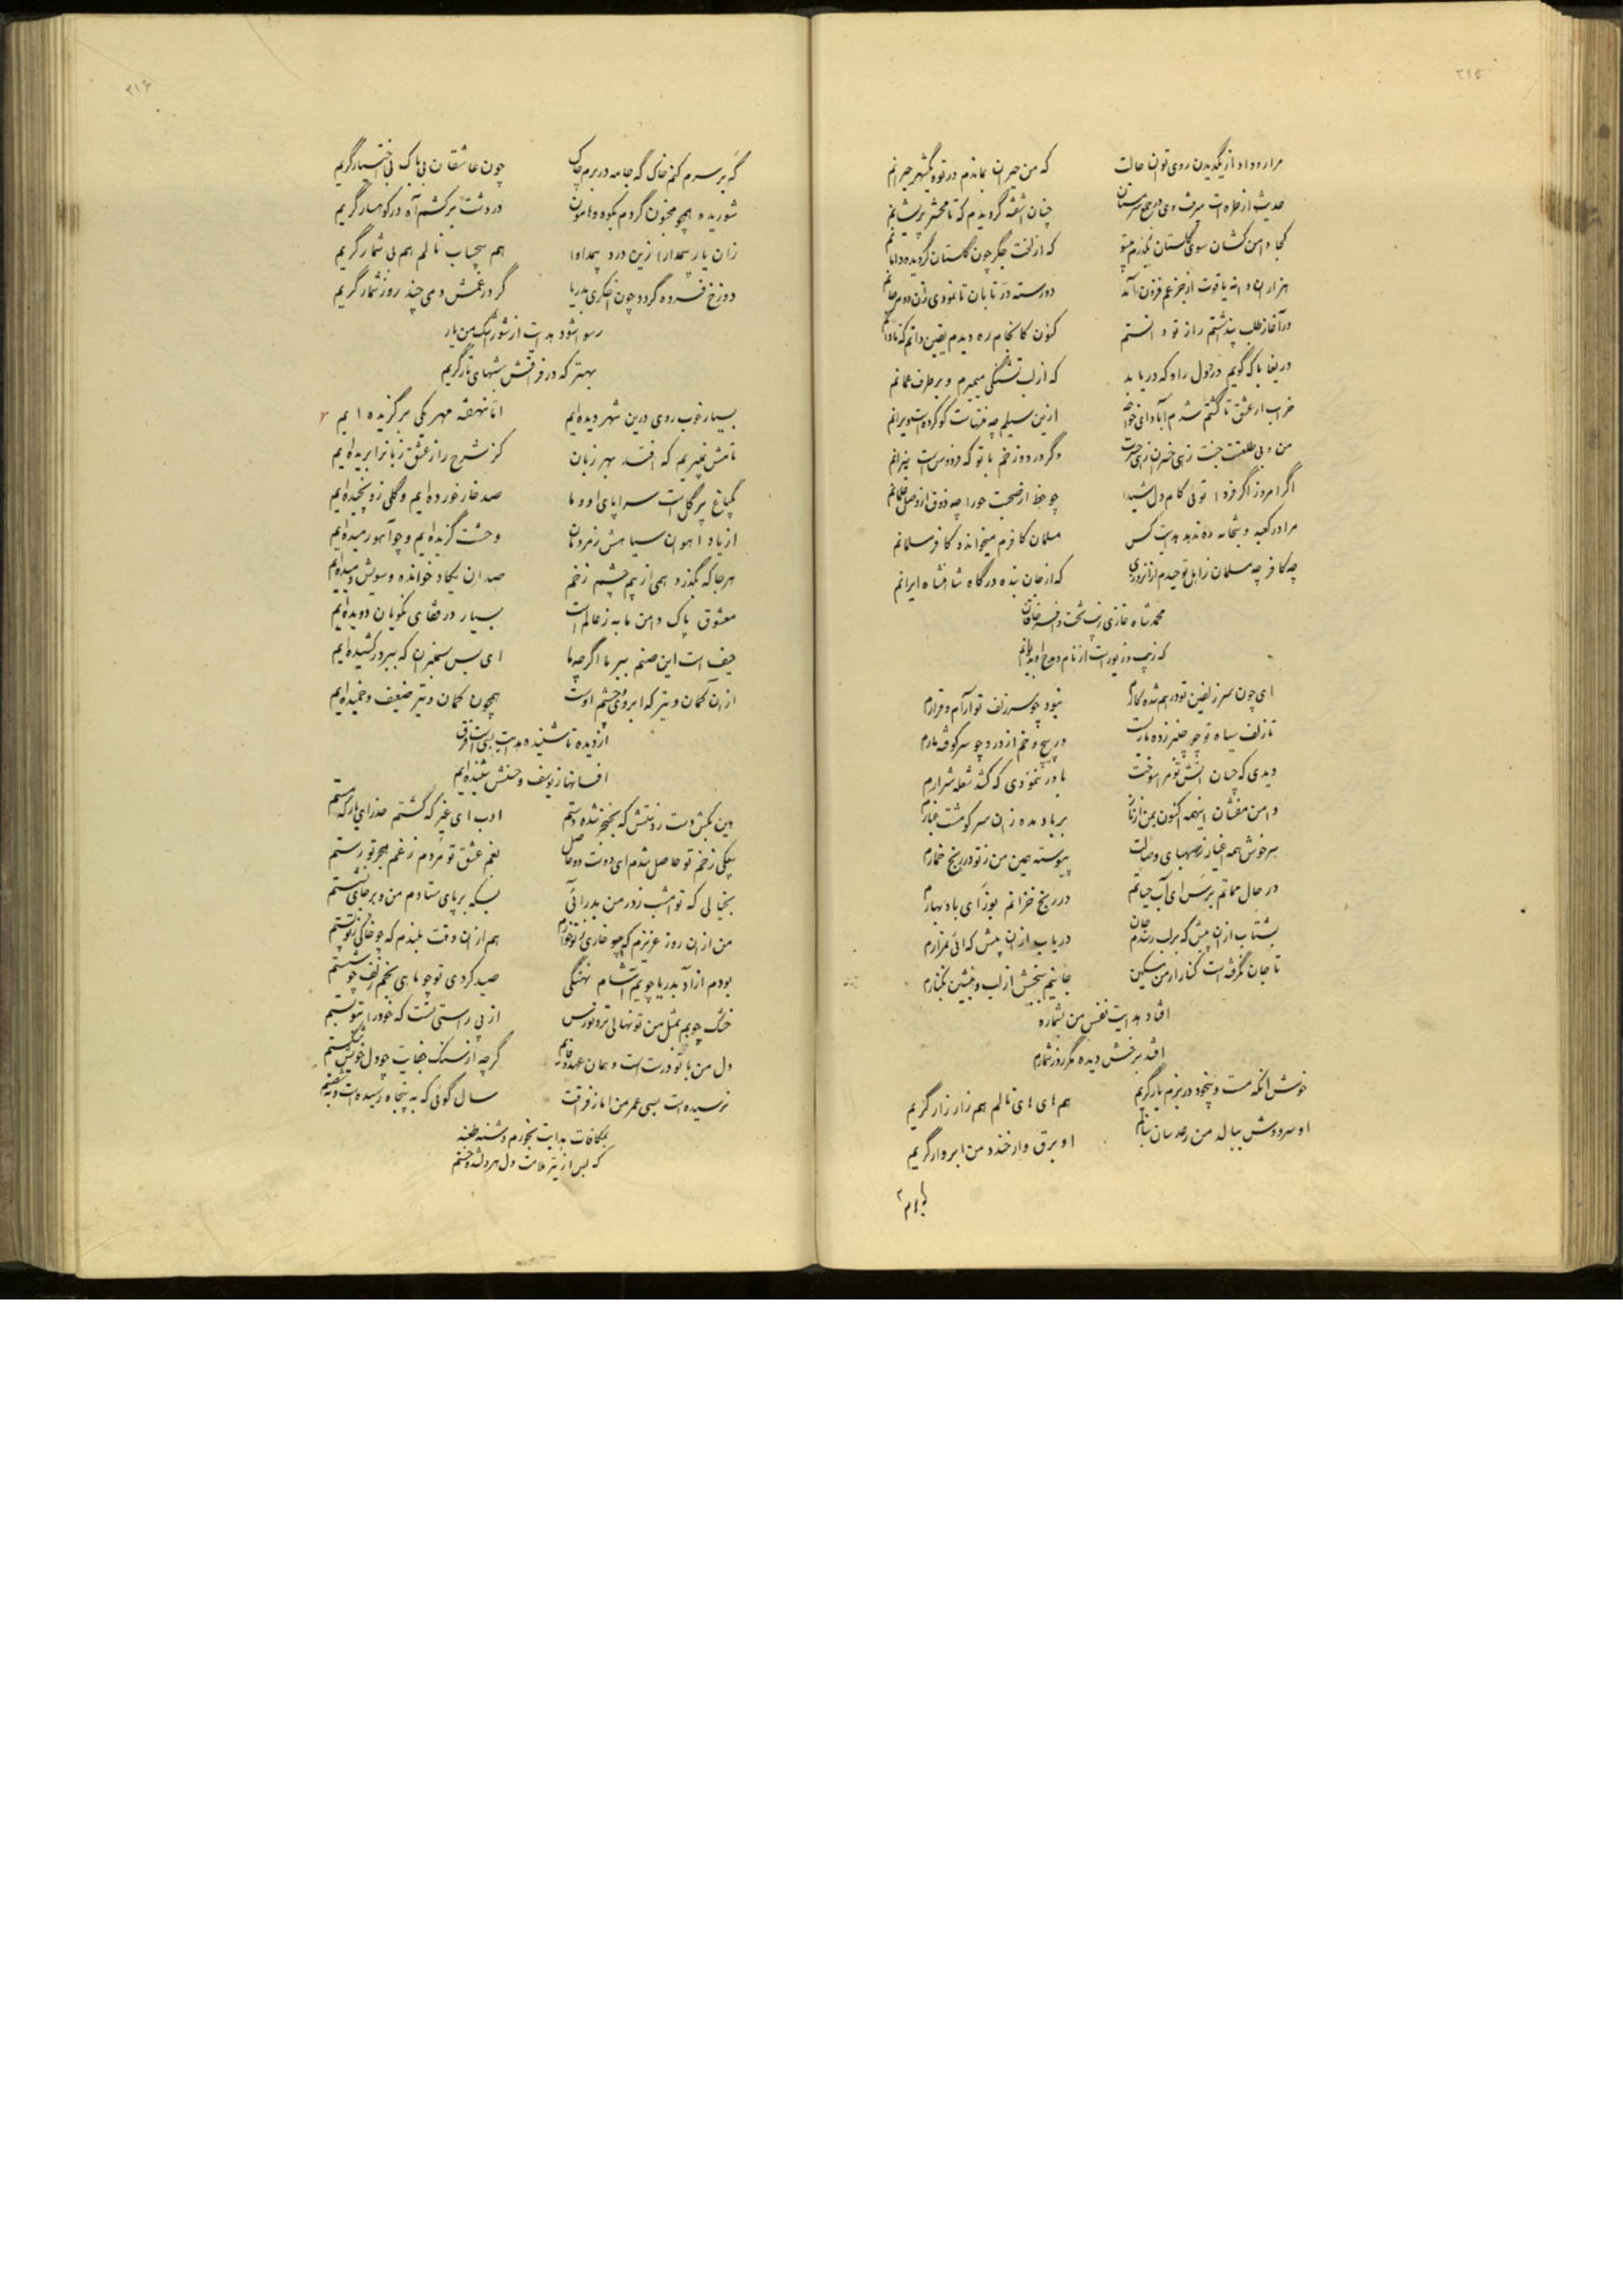 ۳۱۵
مرا رو داد از یکدیدن روی تو این حالت که من حیران بماندم در تو و یکشهر حیرانم
حدیث از طره‌ات میرفت وی در جمع سرمستان چنان آشفته گردیدم که تا محشر پریشانم
کجا دامن کشان سوی گلستان بگذرم بیتو که از لخت جگر چون گلستان گردیده دامانم
هزاران دانه یاقوت از جزعم فزون آمد دو رسته در تابان تا نمودی زان دو مرجانم
در آغاز طلب پنداشتم راز تو دانستم کنون کانجام ره دیدم یقین دانم که نادانم
دریغا با که گویم درد دل را و که دریابد که از لب تشنگی میمیرم و بر طرف عمانم
خراب از عشق تا گشتم شدم آباد ای خواجه ازین سیلم چه منتهاست کو کرده است ویرانم
من و بی طلعتت جنت زهی خسران زهی حسرت وگر در دوزخم با تو که فردوس است نیرانم
اگر امروز اگر فردا توئی کام دل شیدا چو حظ از صحبت حورا چه ذوق از وصل غلمانم
مرا در کعبه و بتخانه ره ندهد هدایت کس مسلمان کافرم میخواند و کافر مسلمانم
چه کافر چه مسلمان ز اهل توحیدم از آنروزی که از جان بنده درگاه شاهنشاه ایرانم
محمد شاه غازی زینت تخت و افسر خاقان
که زیب و زیور است از نام و مدح او بدیوانم
ای چون سر زلفین تو درهم شده کارم نبود چو سر زلف تو آرام و قرارم
تا زلف سیاه تو چو چنبر زده مار است در پیچ و خم از درد چو سر کوفته مارم
دیدی که چسان آتش تو مرا سوخت باور ننمودی که کشد شعله شرارم
دامن مفشان اینهمه اکنون بمن از ناز بر باد مده زان سر کو مشت غبارم
سرخوش همه اغیار ز صهبای وصالت پیوسته همین من ز تو در رنج خمارم
در حال مماتم برس ای آب حیاتم در رنج خزانم بوز ای باد بهارم
بشتاب از آن پیش که بر لب رسدم جان دریاب از آن پیش که آئی بمزارم
تا جان نگرفته است کنار از من مسکین جانیم ببخش از لب و بنشین بکنارم
افتاد هدایت نفس من بشماره
افتد برخش دیده مگر روز شمارم
خوش آنکه مست و بیخود در بزم یار گریم هم های های نالم هم زار زار گریم
او سرو وش ببالد من رعد سان بنالم او برق وار خندد من ابروار گریم
۳۱۶
گه بر سرم کنم خاک گه جامه در برم چاک چون عاشقان بی باک بی اختیار گریم
شوریده همچو مجنون گردم بکوه و هامون در دشت برکشم آه در کوهسار گریم
زان یار بیمدارا زین درد بیمداوا هم بیحساب نالم هم بی شمار گریم
دوزخ فسرده گردد چون اخگری بدریا گر در غمش دمی چند روز شمار گریم
رسوا شود هدایت از شور اشک من یار
بهتر که در فراقش شبهای تار گریم
بسیار خوب روی درین شهر دیده‌ایم اما نهفته مهر یکی برگزیده ایم
نامش نمیبریم که افتد بهر زبان کز شرح راز عشق زبانرا بریده‌ایم
یکباغ پر گل است سراپای او و ما صد خار خورده‌ایم و گلی زو نچیده‌ایم
از یاد آهوان سیاهش ز مردمان وحشت گزیده‌ایم و چو آهو رمیده‌ایم
هر جا که بگذرد همی از بیم چشم زخم صد ان یکاد خوانده و سویش دمیده‌ایم
معشوق پاک دامن ما به ز عالم است بسیار در قفای نکویان دویده‌ایم
حیف است این صنم ببر ما اگر چه ما ای بس سمنبران که ببر در کشیده‌ایم
از آن کمان و تیر که ابروی و چشم اوست همچون کمان و تیر ضعیف و خمیده‌ایم
از دیده تا شنیده هدایت بسی است فرق
افسانها ز یوسف و حسنش شنیده‌ایم
هین بکش دست ز دستش که بخنجر نشده دستم ادب ای غیر که گشتم حذر ای یار که مستم
بیکی زخم تو حاصل شدم ای دوست دو حاصل بغم عشق تو مردم ز غم هجر تو رستم
بخیالی که تو امشب ز در من بدر آئی بسکه بر پای ستادم من و بر جای نشستم
من از آن روز عزیزم که چو خاری ز تو خوارم هم از آن وقت بلندم که چو خاکی ز تو پستم
بودم آزاد بدریا چو یم آشام نهنگی صید کردی تو چو ماهی بخم زلف چو شستم
خشک چوبم بمثل من تو نهالی تر و نورس از پی راستی تست که خود را بتو بستم
دل من با تو درست است و همان عهد وفایم گرچه از سنگ جفایت چو دل خویش شکستم
نرسیده است بسی عمر من اما ز فراقت سال گوئی که به پنجاه رسیده است و به شصتم
بمکافات هدایت بخورم دشنه طعنه
که بس از تیر ملامت دل هر دلشده خستم